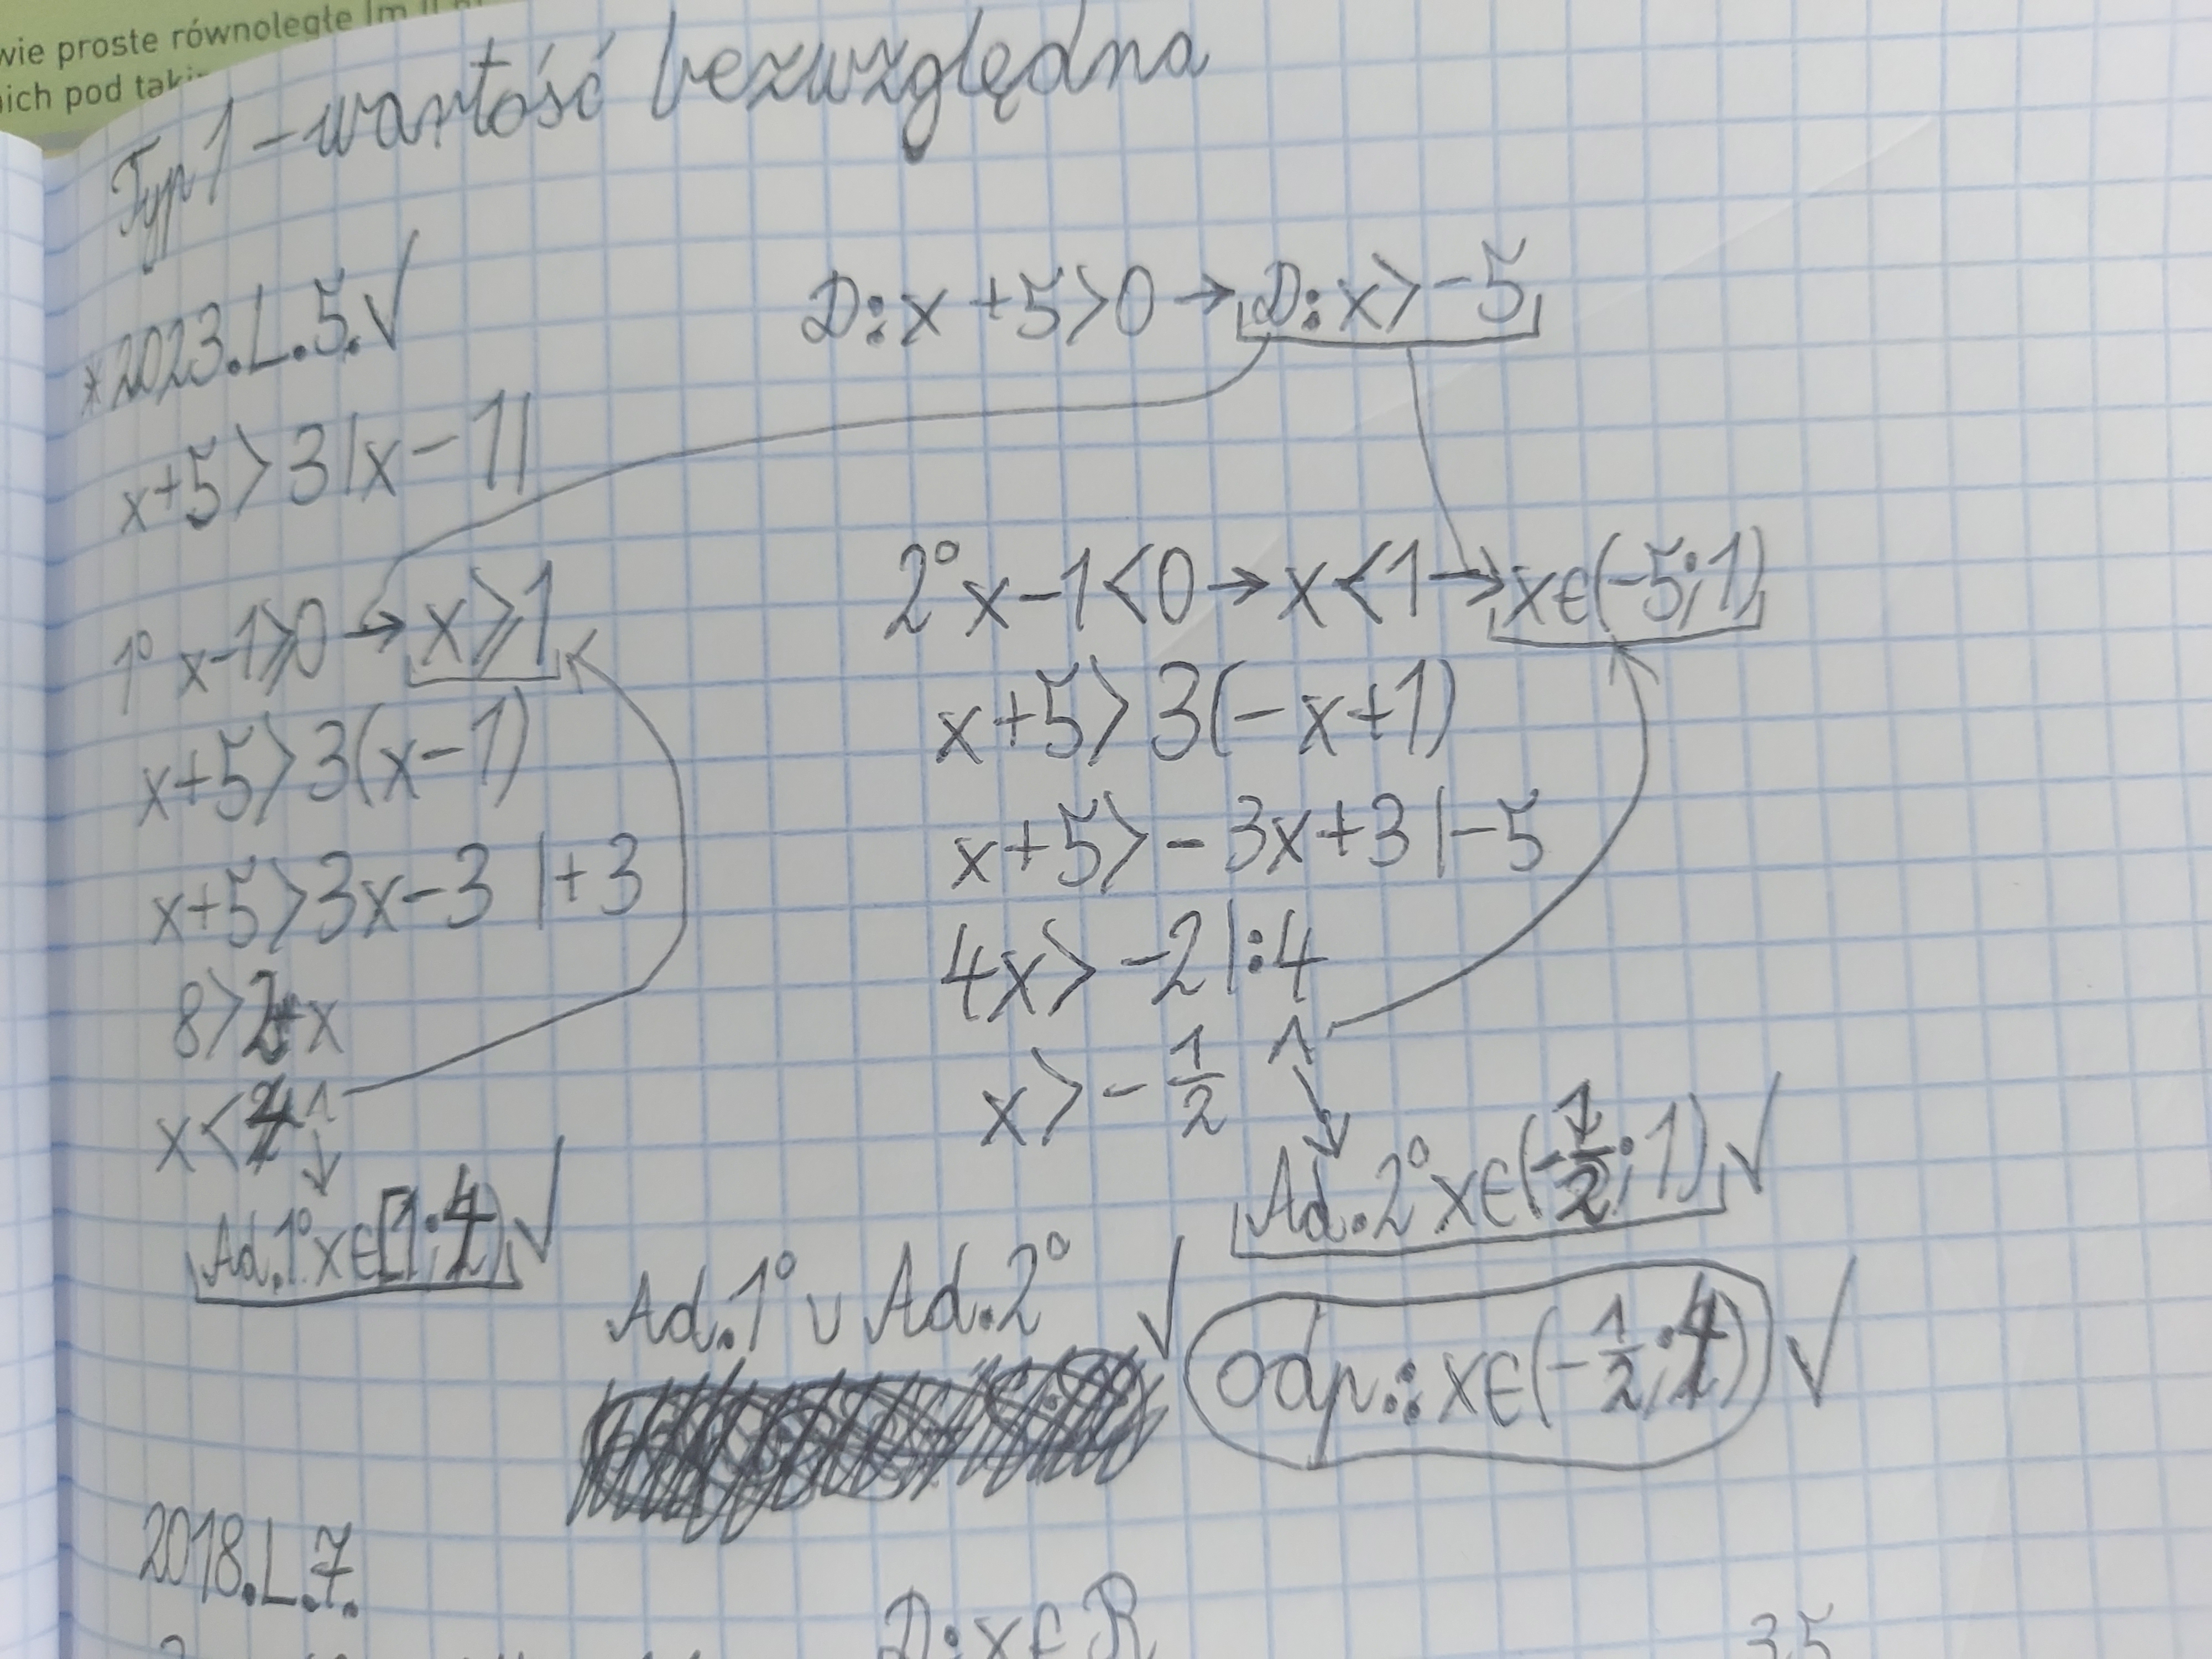 wie proste równoległe
nich pod
Typ 1 - wartość bezwzględna
* 2023.L.5. ✓
D: x + 5 > 0 → D: x > -5
x+5 > 3|x-1|
1° x-1⩾0 → x⩾1
x+5 > 3(x-1)
x+5 > 3x-3 |+3
8 > 2x
x < 4 ∧
Ad.1° x∈[1;4) ✓
2° x-1<0 → x<1 → x∈(-5;1)
x+5 > 3(-x+1)
x+5 > -3x+3 |-5
4x > -2 |:4
x > -1/2 ∧
Ad.2° x∈(-1/2;1) ✓
Ad.1° ∪ Ad.2° ✓
odp.: x∈(-1/2;4) ✓
2018.L.7.
D: x∈R
35